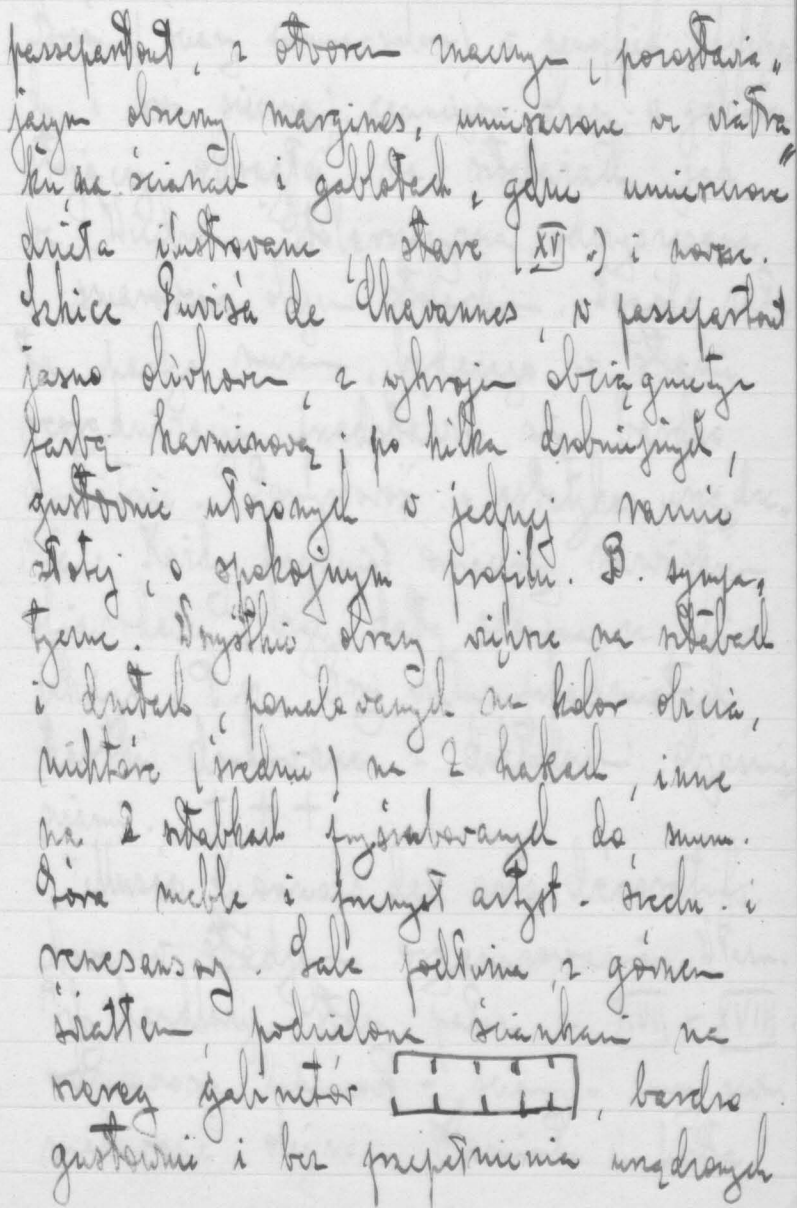 passepartout, z otworem znacznym, pozostawia„
jącym obszerny margines, umieszczone w wiatra„
ku, na ściankach i gablotach, gdzie umieszczone
dzieła ilustrowane stare (XV w.) i nowsze.
Szkice Puvisa de Chavannes, w passepartout
jasno oliwkowem, z wykrojem obciągniętym
farbą karminową, po kilka drobniejszych,
gustownie ułożonych w jednej ramie
złotej, o spokojnym profilu. B. sympa„
tyczne. Wszystkie obrazy większe na sztabach
i drutach, pomalowanych na kolor obicia,
niektóre (średnie) na 2 hakach, inne
na 2 sztabkach przyśrubowanych do muru.
Góra meble i przemysł artyst. średn. i
renesansowy. Sala podłużna, z górnem
światłem, podzielona ściankami na
szereg gabinetów , bardzo
gustownie i bez przepełnienia urządzonych